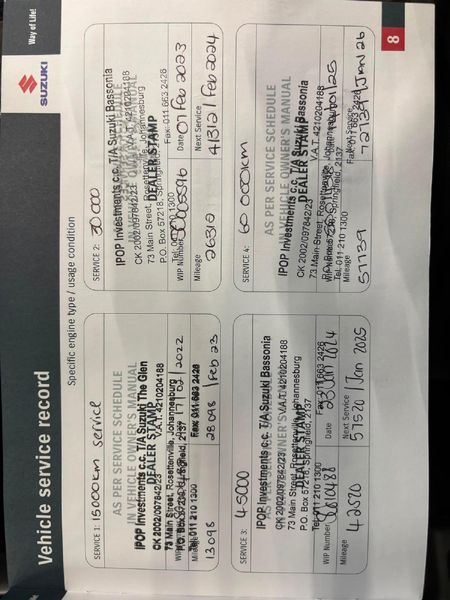 Vehicle service record
SUZUKI
Way of Life!
Specific engine type / usage condition
SERVICE 1: 15000km service
AS PER SERVICE SCHEDULE
IN VEHICLE OWNER'S MANUAL
IPOP Investments c.c. T/A Suzuki The Glen
DEALER STAMP
CK 2002/097842/23 V.A.T. 4210204188
73 Main Street, Rosettenville, Johannesburg
P.O. Box 57218, Springfield, 2137
Tel: 011 210 1300 Fax: 011 663 2426
Mileage
13098 28098 / Feb 23
SERVICE 2: 30 000
AS PER SERVICE SCHEDULE
IN VEHICLE OWNER'S MANUAL
IPOP Investments c.c. T/A Suzuki Bassonia
CK 2002/097842/23 V.A.T. 4210204188
DEALER STAMP
73 Main Street, Rosettenville, Johannesburg
P.O. Box 57218, Springfield, 2137
Tel: 011 210 1300 Fax: 011 663 2426
WIP Number Date 07 Feb 2023
Mileage Next Service
26312 41312 / Feb 2024
SERVICE 3: 45000
AS PER SERVICE SCHEDULE
IN VEHICLE OWNER'S MANUAL
IPOP Investments c.c. T/A Suzuki Bassonia
CK 2002/097842/23 V.A.T. 4210204188
DEALER STAMP
73 Main Street, Rosettenville, Johannesburg
P.O. Box 57218, Springfield, 2137
Tel: 011 210 1300 Fax: 011 663 2426
WIP Number Date 23 Jan 2024
Mileage Next Service
42520 57520 / Jan 2025
SERVICE 4: 60 000km
AS PER SERVICE SCHEDULE
IN VEHICLE OWNER'S MANUAL
IPOP Investments c.c. T/A Suzuki Bassonia
DEALER STAMP
CK 2002/097842/23 V.A.T. 4210204188
73 Main Street, Rosettenville, Johannesburg
Springfield, 2137
Tel: 011 210 1300 Fax: 011 663 2426
Mileage Next Service
57139 72139 / Jan 26
8